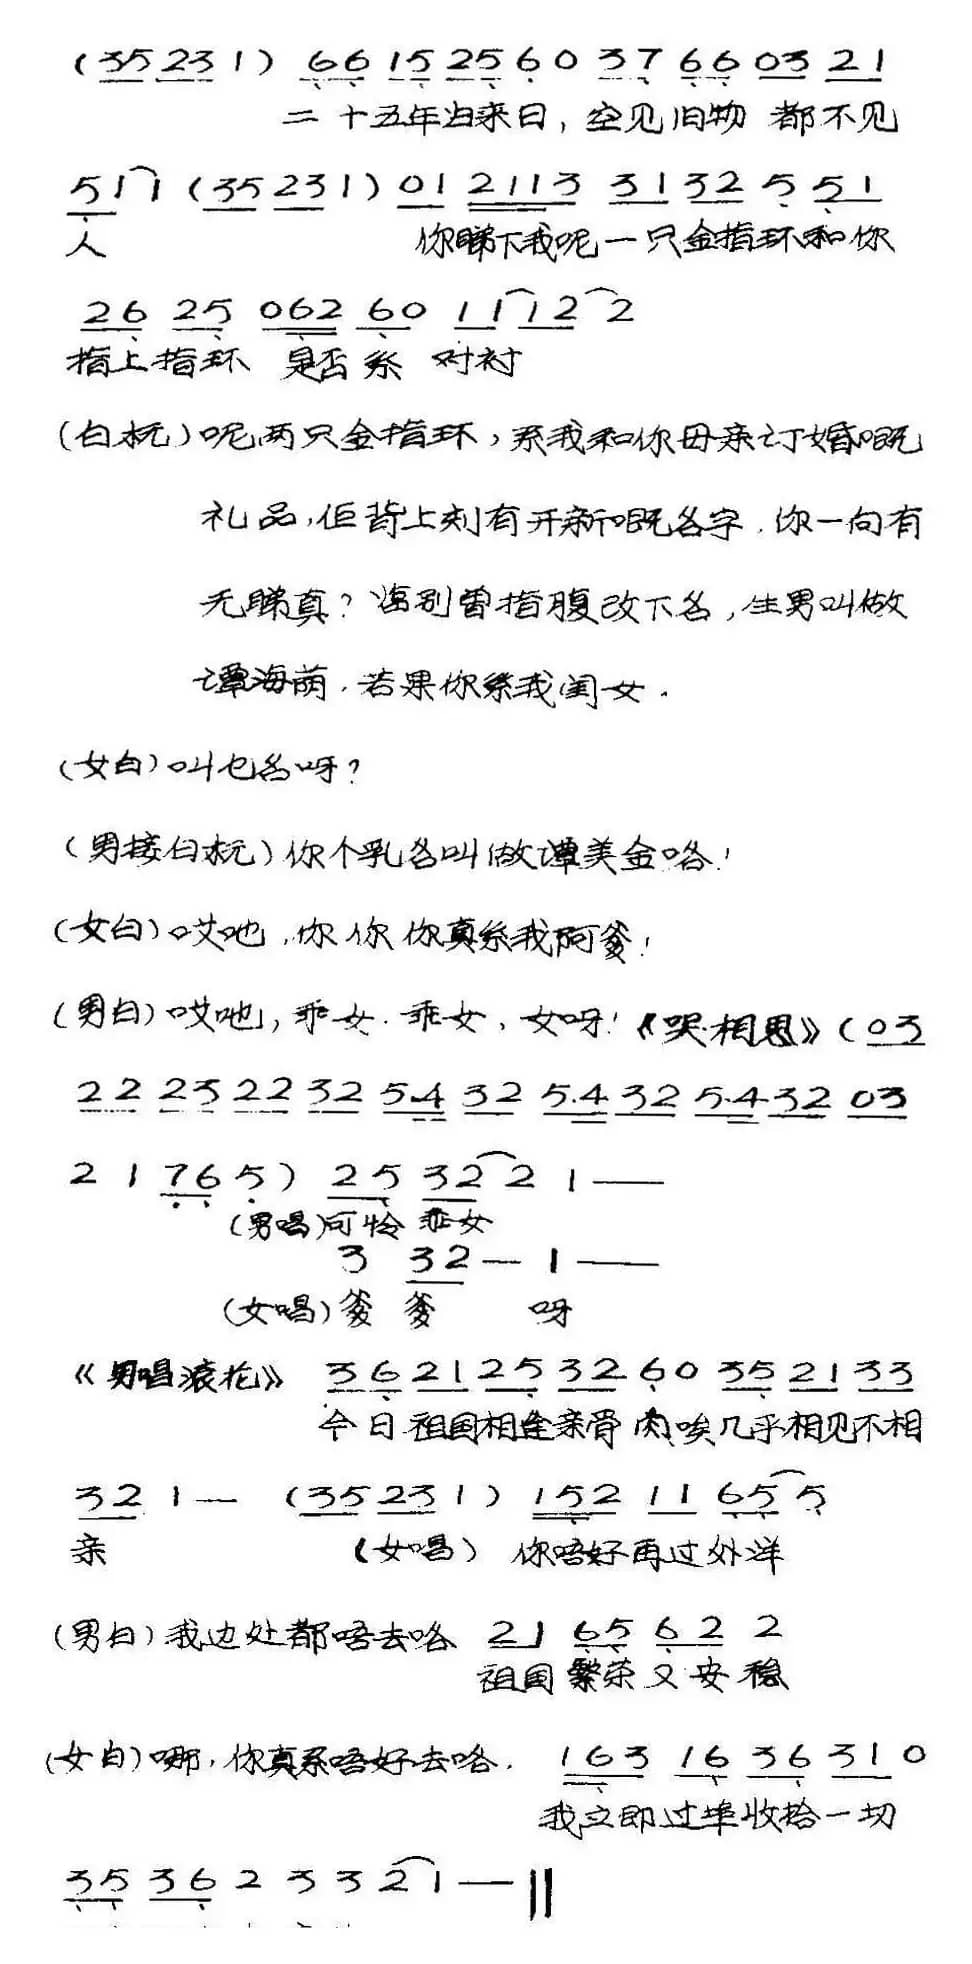 (35 23 1) 66 15 25 6 0 37 66 03 21
二十五年归来日，空见旧物 都不见
5 1 1 (35 23 1) 01 2113 31 32 5 5 1
人 你睇下我呢一只金指环和你
26 25 062 60 11 12 2
指上指环 是否系 对衬
(白杬)呢两只金指环，系我和你母亲订婚嘅
礼品，佢背上刻有开新嘅名字．你一向有
无睇真？临别曾指腹改下名，生男叫做
谭海萌．若果你系我闺女．
(女白)叫乜名呀？
(男接白杬)你个乳名叫做谭美金咯！
(女白)哎吔，你你你真系我阿爹！
(男白)哎吔，乖女．乖女，女呀！《哭相思》(03
22 23 22 32 5.4 32 5.4 32 5.4 32 03
2 1 76 5) 25 32 2 1 —
(男唱)可怜 乖女
3 32 — 1 —
(女唱)爹 爹 呀
《男唱滚花》 36 21 25 32 6 0 35 21 33
今日祖国相逢亲骨肉唉几乎相见不相
32 1 — (35 23 1) 152 11 65 5
亲 (女唱) 你唔好再过外洋
(男白)我边处都唔去咯 21 65 62 2
祖国繁荣又安稳
(女白)哪，你真系唔好去咯． 163 16 36 31 0
我立即过埠收拾一切
35 36 2 3 3 2 1 — ‖